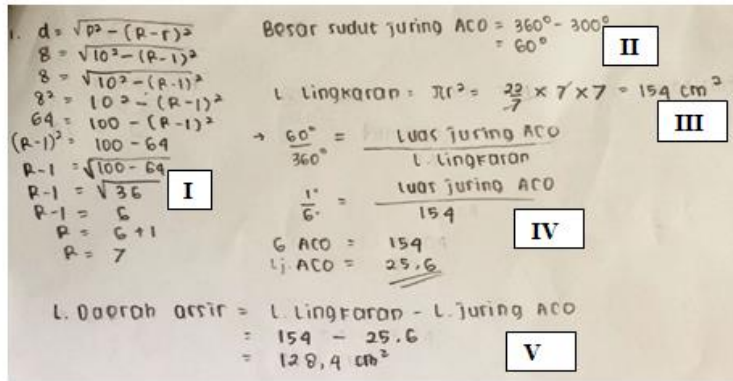 1. d = √p² - (R-r)²
8 = √10² - (R-1)²
8 = √10² - (R-1)²
8² = 10² - (R-1)²
64 = 100 - (R-1)²
(R-1)² = 100 - 64
R-1 = √100 - 64
R-1 = √36
I
R-1 = 6
R = 6+1
R = 7
Besar sudut juring ACO = 360° - 300°
= 60°
II
L. Lingkaran = πr² = 22/7 × 7 × 7 = 154 cm²
III
→ 60°/360° = Luas juring ACO / L. Lingkaran
1°/6° = Luas juring ACO / 154
IV
6 ACO = 154
Lj. ACO = 25.6
L. Daerah arsir = L. Lingkaran - L. Juring ACO
= 154 - 25.6
= 128,4 cm²
V